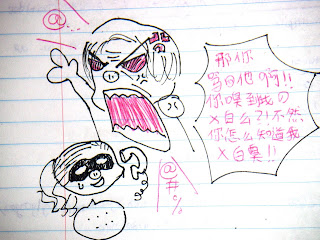 @...
那你
他啊!!
你嗅到我の
×白么?!不然
你怎么知道我
×白臭!!
@
#
%